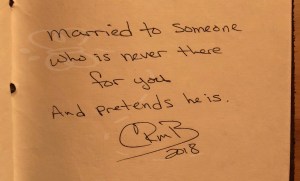 Married to someone
who is never there
for you
And pretends he is.
CRMB
2018